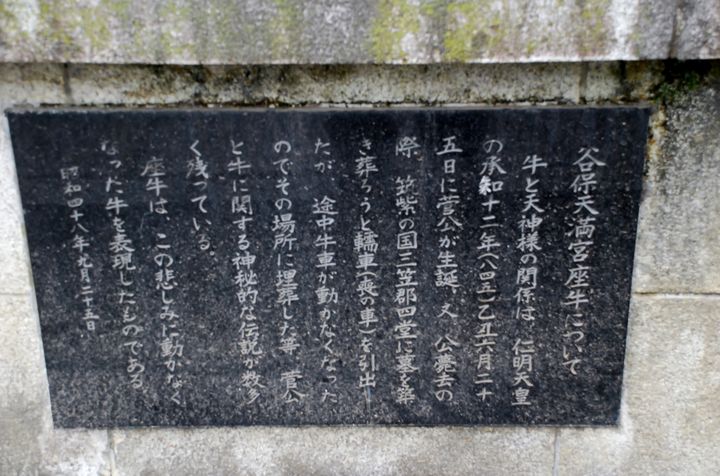 谷保天満宮座牛について
牛と天神様の関係は、仁明天皇
の承和十二年(八四五)乙丑六月二十
五日に菅公が生誕、又、公薨去の
際、筑紫の国三笠郡四堂に墓を築
き葬ろうと轜車(喪の車)を引出し
たが、途中牛車が動かなくなった
のでその場所に埋葬した等、菅公
と牛に関する神秘的な伝説が数多
く残っている。
座牛は、この悲しみに動かなく
なった牛を表現したものである
昭和四十八年九月二十五日